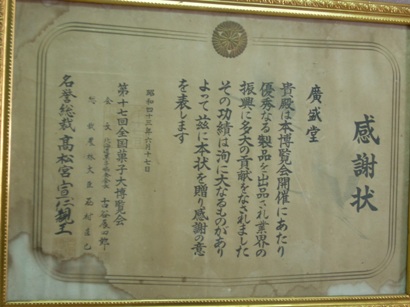 感謝状
廣盛堂
貴殿は本博覧会開催にあたり
優秀なる製品を出品され業界の
振興に多大の貢献をなされました
その功績は洵に大なるものがあり
よって茲に本状を贈り感謝の意
を表します
昭和四十三年六月十七日
第十七回全国菓子大博覧会
会長 古谷辰四郎
総裁農林大臣 西村直己
名誉総裁高松宮宣仁親王